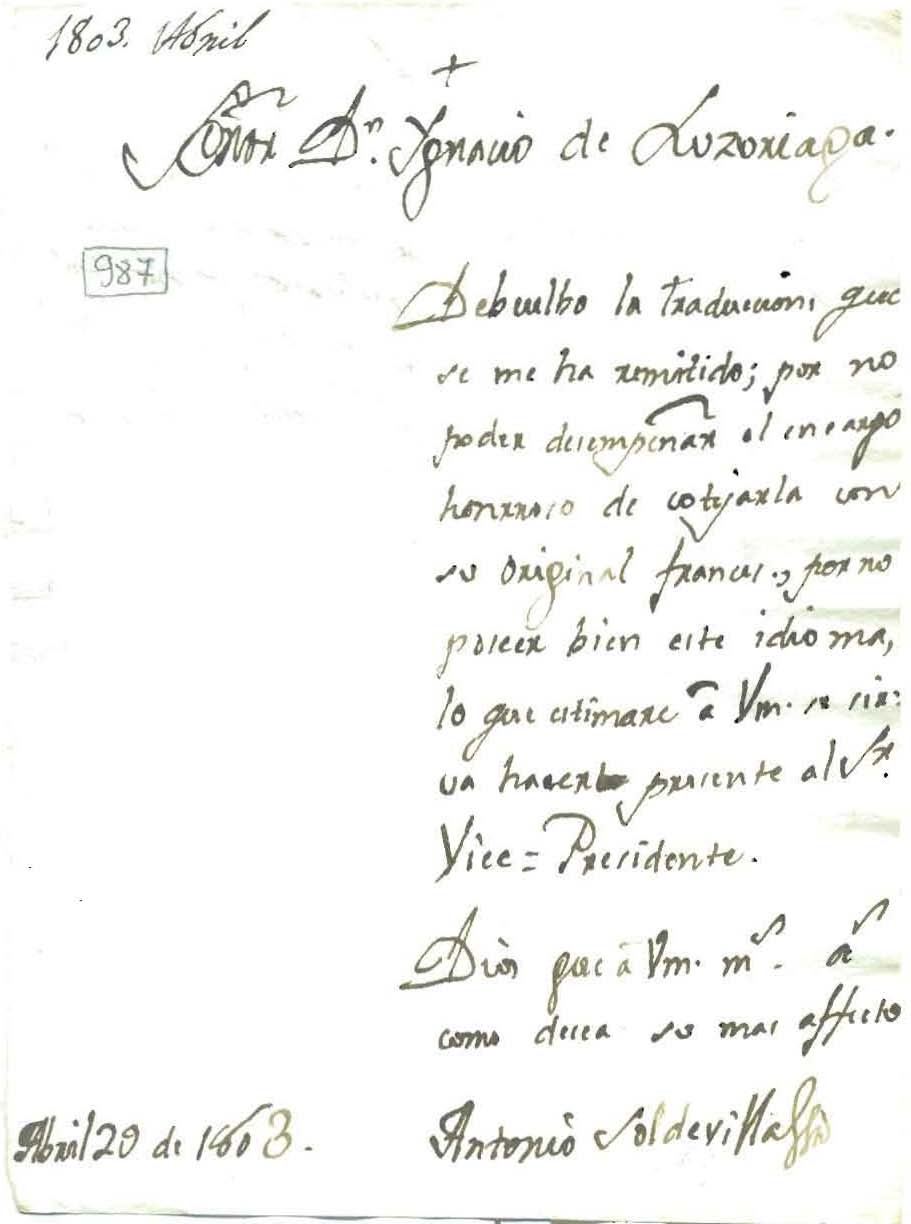 1803. Abril
+
Señor Dn. Ygnacio de Luzoriaga.
987
Debuelbo la traducion, que
se me ha remitido; por no
poder desempeñar el encargo
honrroso de cotejarla con
su original frances, por no
poseer bien este idioma,
lo que estimare â Vm. se sir:
va hacerlo presente al Sr.
Vice=Presidente.
Dios gue â Vm. ms. as
como desea su mas affecto
Abril 29 de 1803.
Antonio Soldevilla